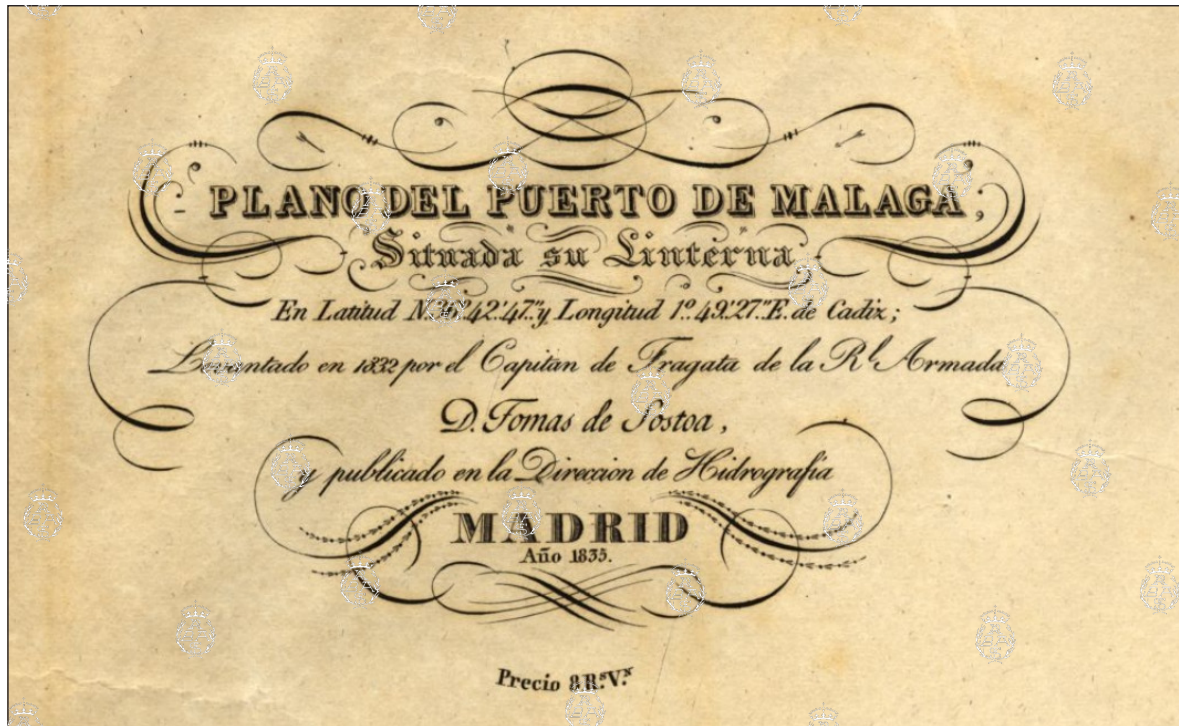 PLANO DEL PUERTO DE MALAGA,
Situada su Linterna
En Latitud N. 36.°42.'47." y Longitud 1.° 49.'27." E. de Cadiz;
Levantado en 1832 por el Capitan de Fragata de la R.l Armada
D. Tomas de Sostoa,
y publicado en la Direccion de Hidrografia
MADRID
Año 1835.
Precio 8 R.s V.n